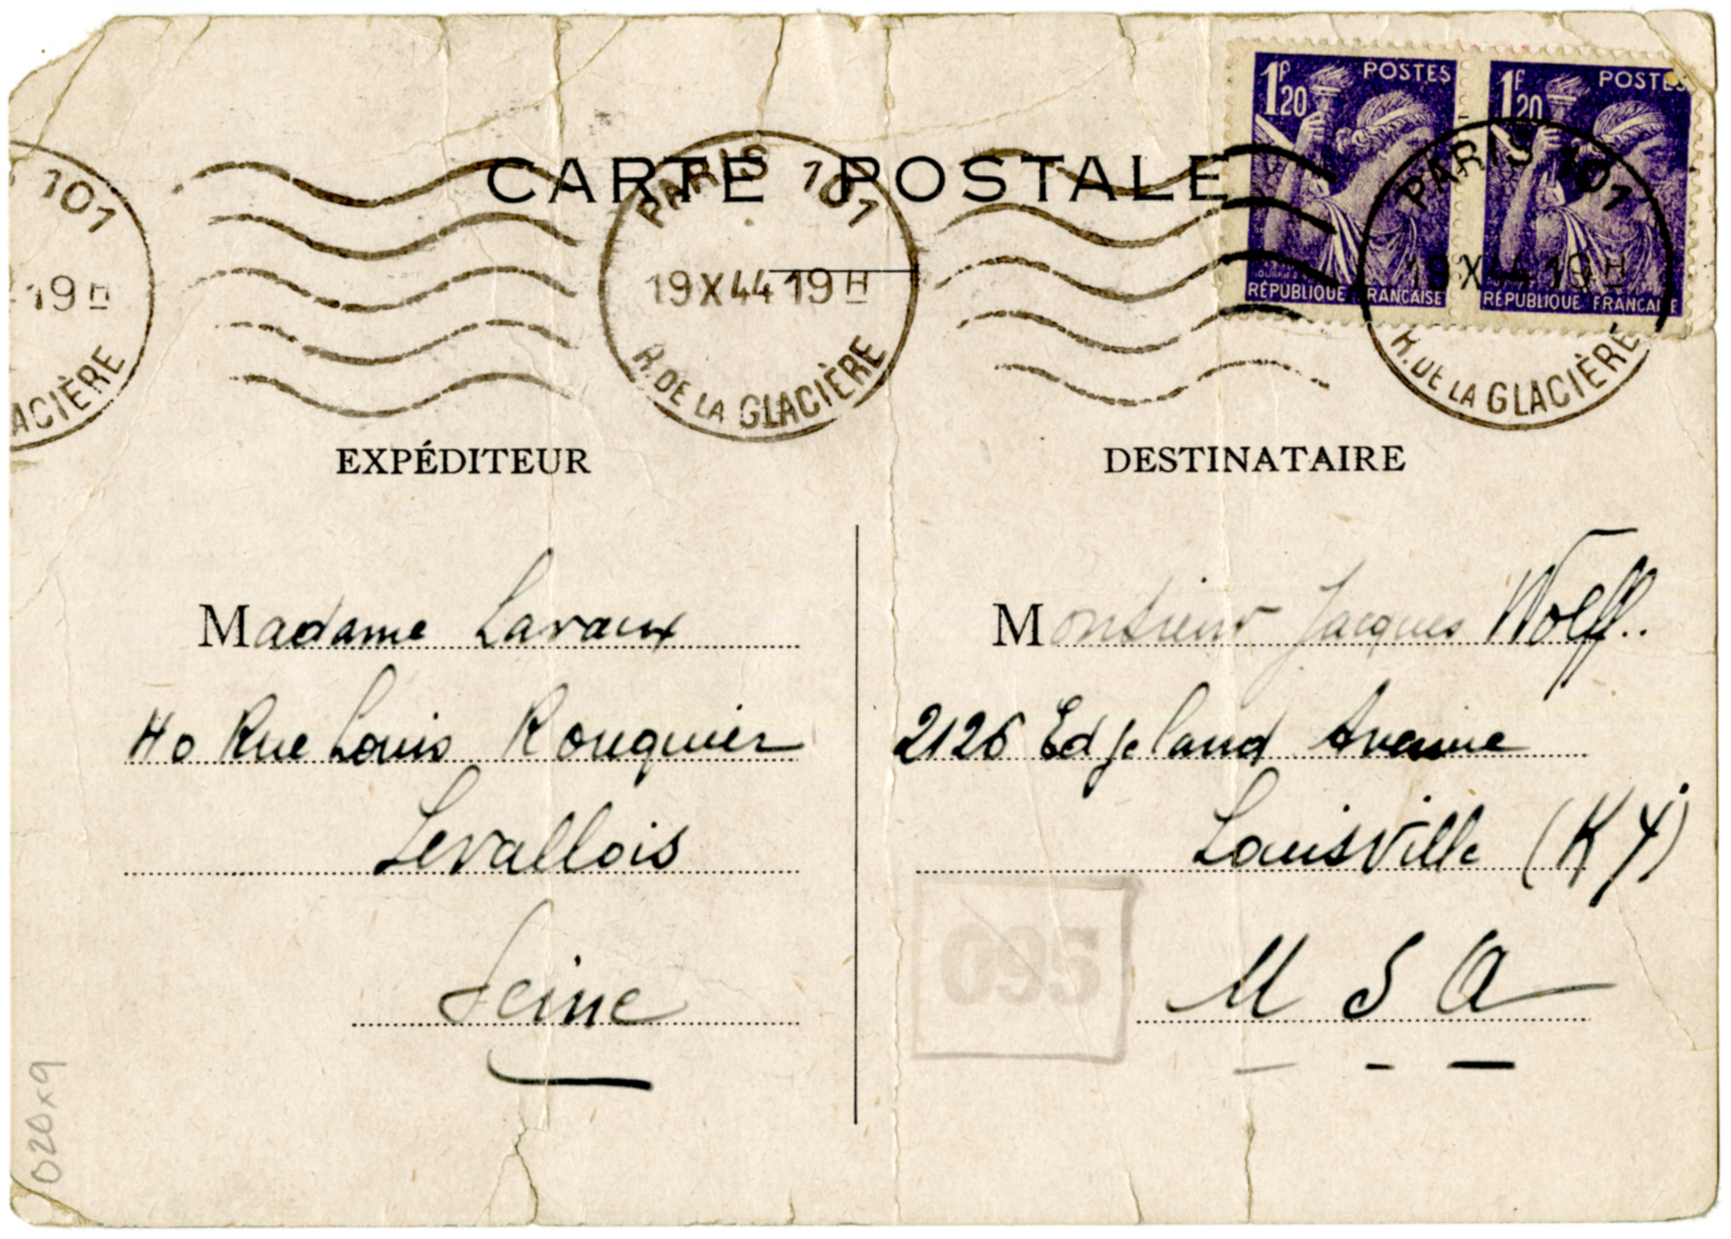 1F20 POSTES
1F20 POSTES
RÉPUBLIQUE FRANCAISE
RÉPUBLIQUE FRANCAISE
CARTE POSTALE
101
19H
ACIÈRE
PARIS 101
19 X 44 19H
R. DE LA GLACIÈRE
PARIS 101
19 X 44 19H
R. DE LA GLACIÈRE
EXPÉDITEUR
Madame Lavaux
40 Rue Louis Rouquier
Levallois
Seine
DESTINATAIRE
Monsieur Jacques Wolff..
2126 Edgeland Avenue
Louisville (Ky)
U S A
095
D20x9